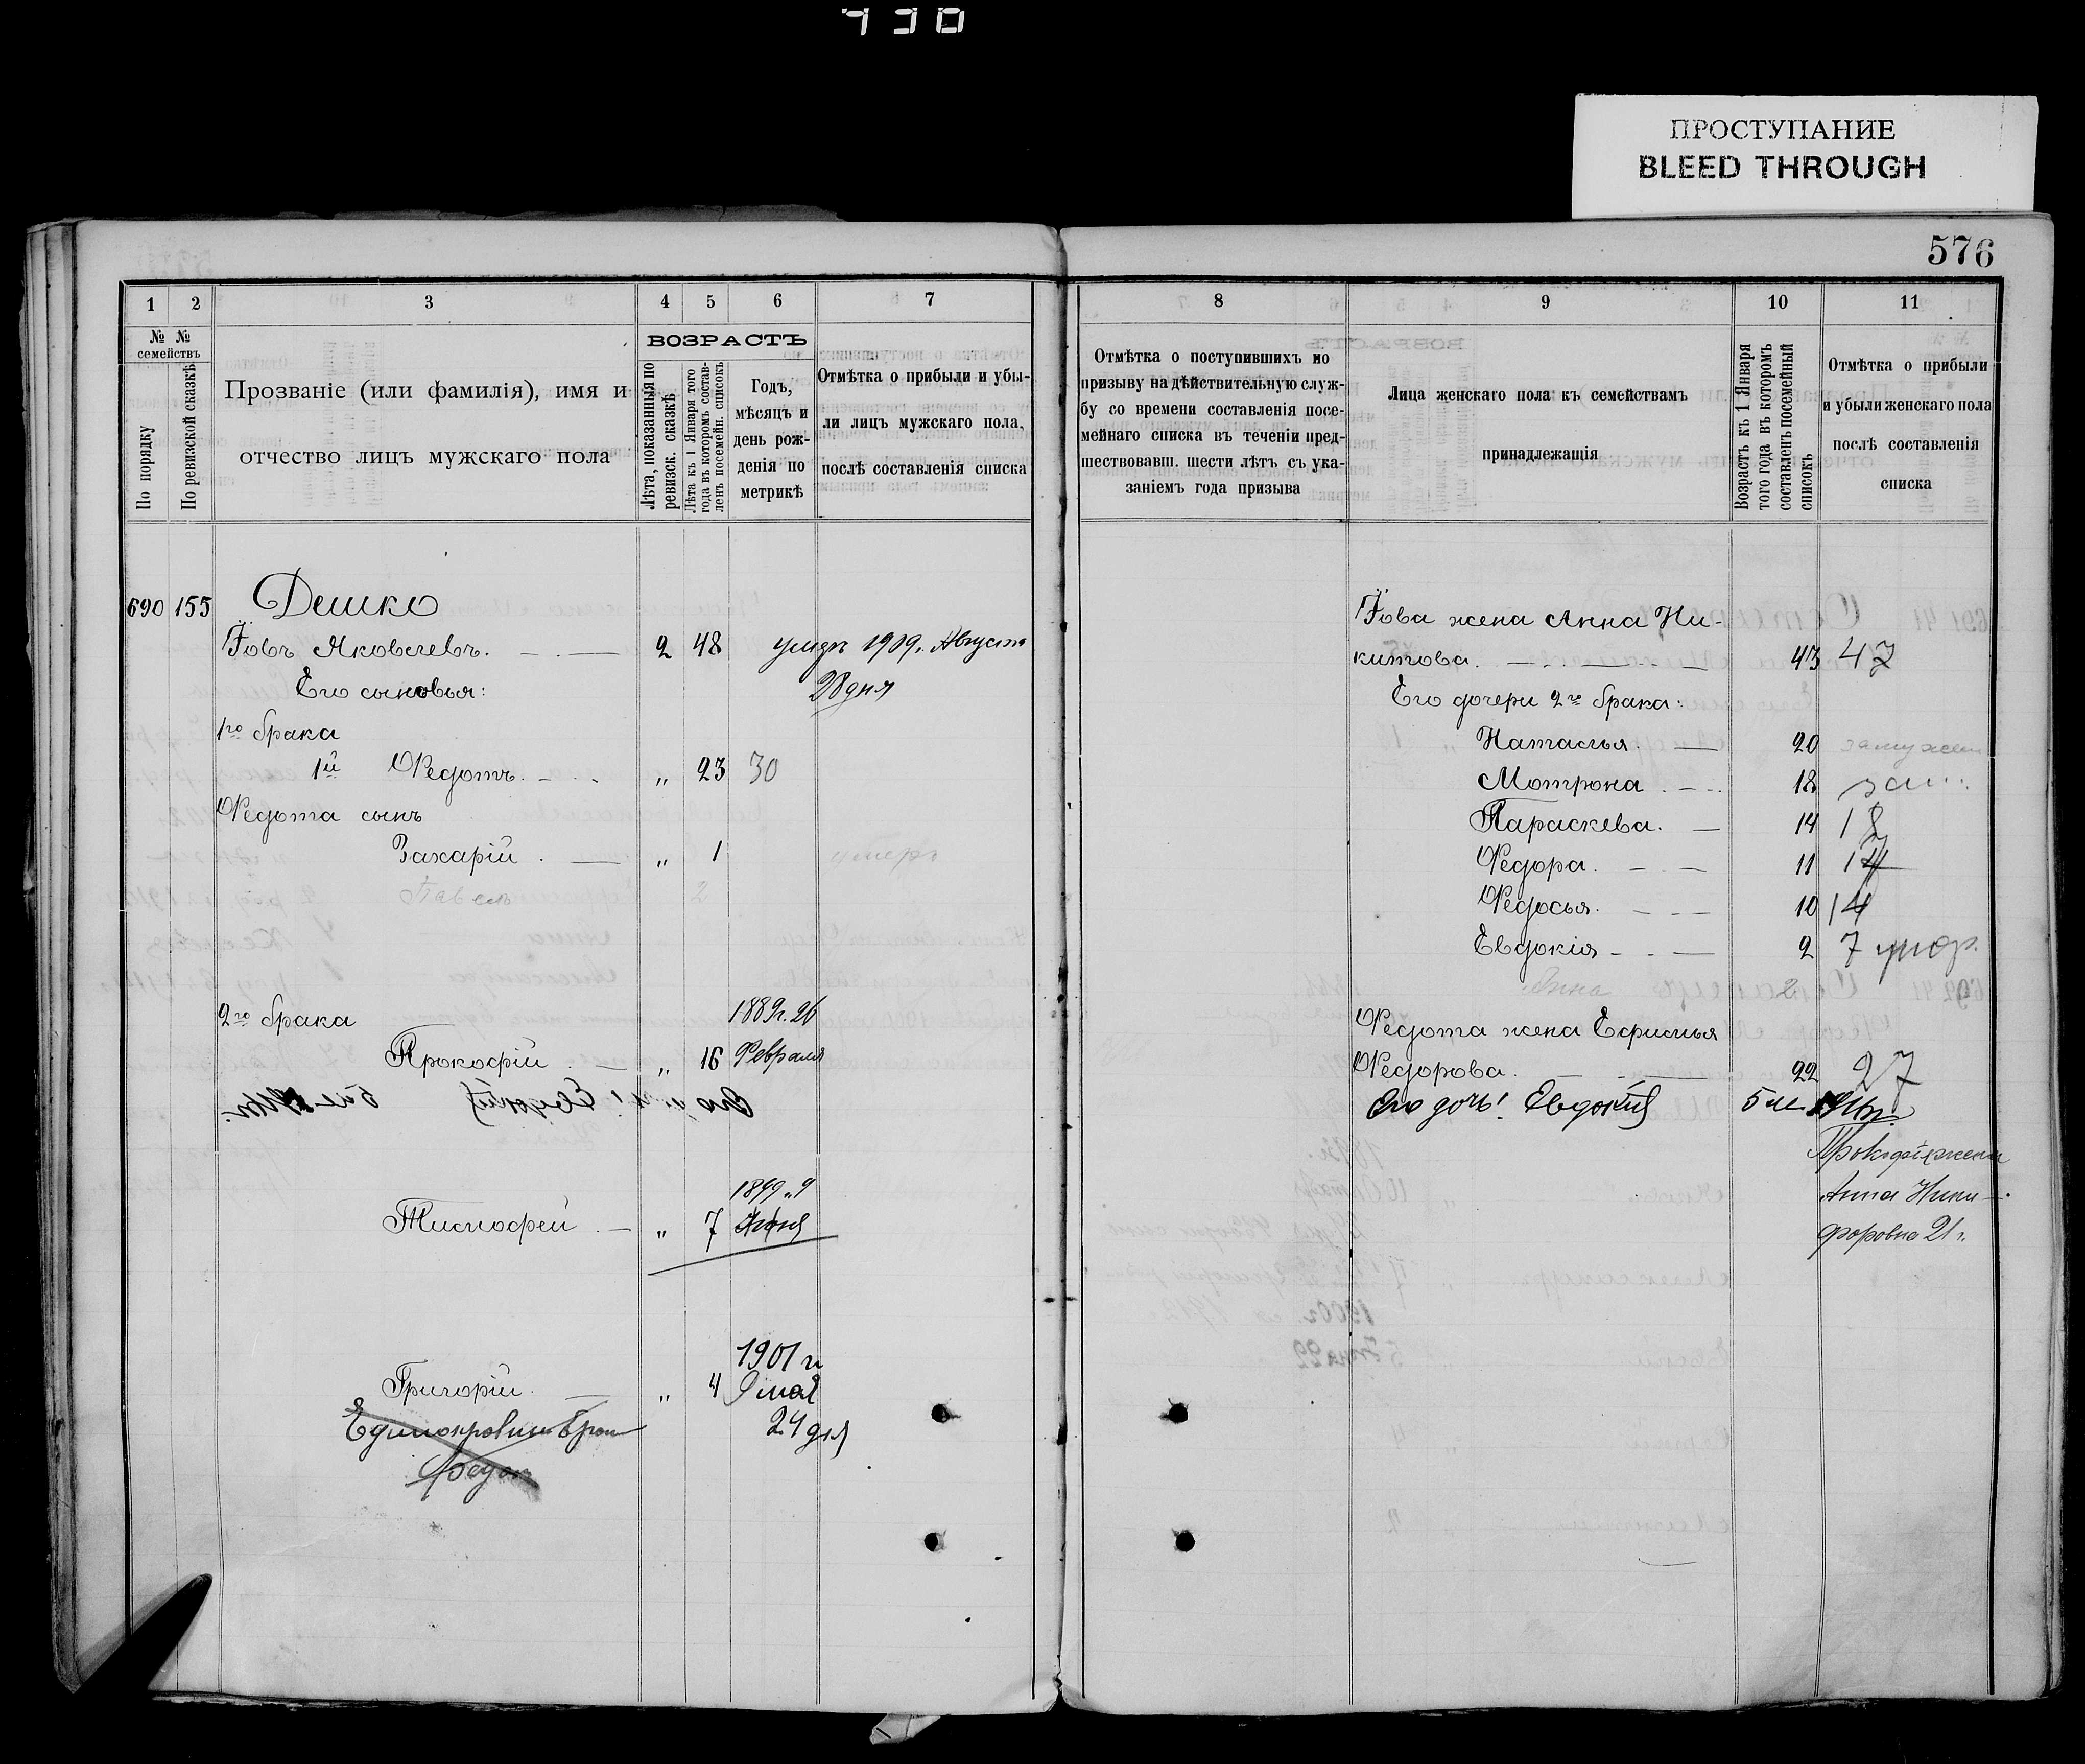 730
ПРОСТУПАНИЕ
BLEED THROUGH
576
1 2 3 4 5 6 7
№ № семействъ
По порядку
По ревизской сказкѣ
Прозваніе (или фамилія), имя и
отчество лицъ мужскаго пола
ВОЗРАСТЪ
Лѣта, показанныя по
ревизск. сказкѣ
Лѣта къ 1 Января того
года въ которомъ состав-
ленъ посемейн. списокъ
Годъ,
мѣсяцъ и
день рож-
денія по
метрикѣ
Отмѣтка о прибыли и убы-
ли лицъ мужскаго пола,
послѣ составленія списка
690 155 Дешко
Іовъ Яковлевъ. 2 48 умеръ 1909г. Августа
Его сыновья: 28 дня
1го брака
1й Ѳедотъ. " 23 30
Ѳедота сынъ
Захарій. " 1 умеръ
Павелъ 2
2го брака 1889г. 26
Прокофій. " 16 Февраля
1899 " 9
Тимофей. " 7
1901 г
Григорій. " 4 мая
24 дня
Единокровный братъ
Федотъ
8 9 10 11
Отмѣтка о поступившихъ по
призыву на дѣйствительную служ-
бу со времени составленія посе-
мейнаго списка въ теченіи пред-
шествовавш. шести лѣтъ съ ука-
заніемъ года призыва
Лица женскаго пола къ семействамъ
принадлежащія
Возрастъ къ 1 Января
того года въ которомъ
составленъ посемейный
списокъ
Отмѣтка о прибыли
и убыли женскаго пола
послѣ составленія
списка
Іова жена Анна Ни-
китова. 43 47
Его дочери 2го брака:
Наталья. 20 замужем
Мотрона. 18 зам
Параскева. 14 18
Ѳедора. 11
Ѳедосья. 10 14
Евдокія 2 7 умер.
Анна 2
Ѳедота жена Ефимья
Ѳедорова. 22 27
Его дочь! Евдокія 5 м
Прокофія жена
Анна Ники-
форовна 21 г.